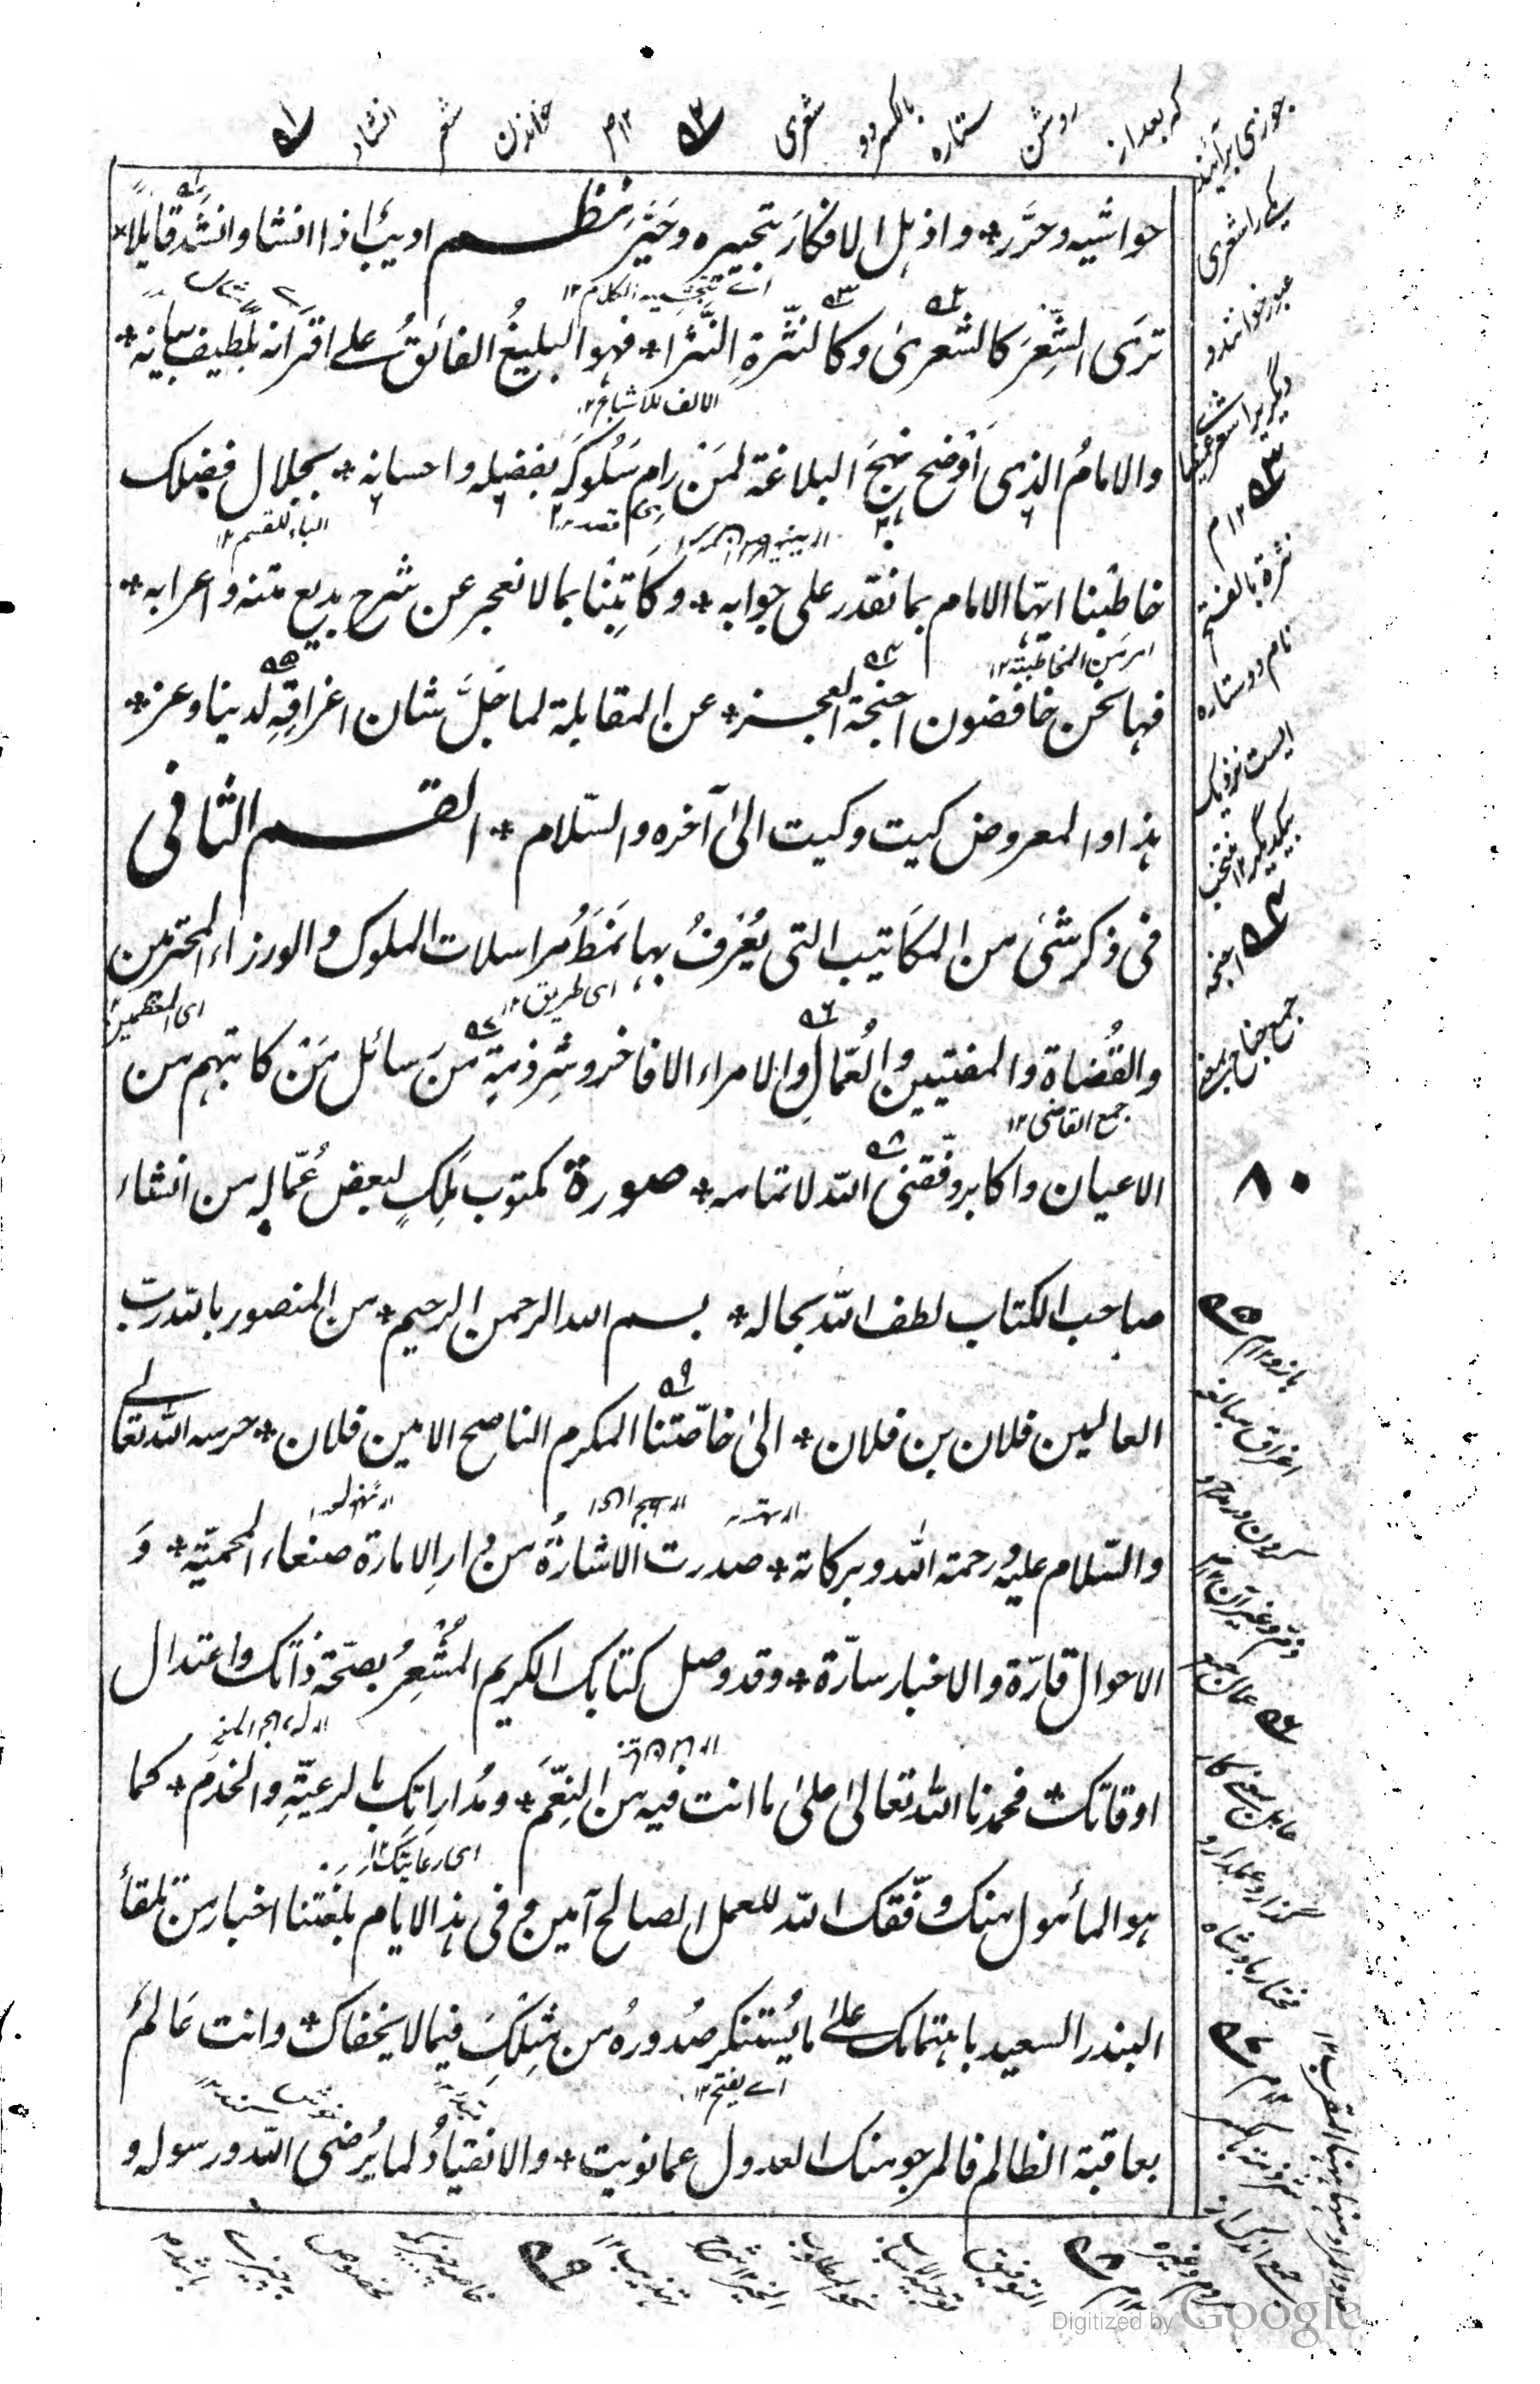 حواشيه وحرَّر * واذهل الافكارَ بتحبيره وحَيَّر نظم اديبٌ اذا انشا وانشد قايلًا *
ترَى الشِّعرَ كالشعرىٰ وكالنثرةِ النَّثرا * فهو البليغُ الفائق على اقرانه بلطيف بيانه *
والامامُ الذى اَوْضح نهجَ البلاغة لمَن رام سُلُوكَه بفضله واحسانه * بجلال فضلك
خاطبنا ايها الامام بما نقدر على جوابه * وكَاتِبْنا بما لا نعجز عن شرح بديع متنه واعرابه *
فها نحن خافضون اجنحة العجز * عن المقابلة لما جَلَّ شان اغراقِهِ لدينا وعز *
هذا والمعروض كيت وكيت الىٰ آخره والسّلام * القسم الثانى
فى ذكر شئ من المكَاتيب التى يُعْرَفُ بها نَمَطُ مراسلات الملوك والوزراء المحترمين
والقُضاة والمفتيين والعُمّالِ والامراء الافاخر وشِرذمةٍ منَ رسائل مَن كاتبهم من
الاعيان واكابر وفّقنى اللّٰه لاتمامه * صورة مكتوب مَلِكٍ لبعض عُمّاله من انشاء
صاحب الكتاب لطف اللّٰه بحاله * بسم الله الرحمن الرحيم * من المنصور باللّٰه ربّ
العالمين فلان بن فلان * الىٰ خاصّتنا المكرم الناصح الامين فلان * حرسه اللّٰه تعالے
والسّلام عليه ورحمة اللّٰه وبركاته * صدرت الاشارةُ من دارِ الامارة صنعاء المحميّة * وَ
الاحوال قارّة والاخبار سارّة * وقد وصل كتابك الكريم المُشْعِرُ بصحّة ذاتك واعتدال
اوقاتك * فحمدنا اللّٰه تعالىٰ علىٰ ما انت فيه من النِّعَم * ومُداراتِك بالرعيّةِ والخدَم * كما
هو المأمول منك وفّقك اللّٰه للعمل الصالح آمين وفى هذه الايام بلَغَتنا اخبار من تلقاء
البندر السعيد باهتمامك علىٰ ما يُستنكر صُدورهُ من مِثلِكَ فيما لا يخفاك * وانت عَالمٌ
بعاقبة الظالم فالمرجو منك العدول عما نويت * والانقيادُ لما يُرضى اللّٰه ورسوله و
الالف للاشباع ١٢
الباء للقسم ١٢
امر من المخاطبة ١٢
اى طريق ١٢
جمع القاضى ١٢
اى رعايتك ١٢
اے يفتح ١٢
٨٠
انشاد شعر خواندن ١٢ م
شعرى بالكسر دو ستاره روشن كه بعد از
جوزى برآيند
يكے را شعرى
عبور خوانند و
نثرة بالفتح
نام دو ستاره
ايست نزديك
يكديگر ١٢ منتخب
اجنحه
Digitized by Google